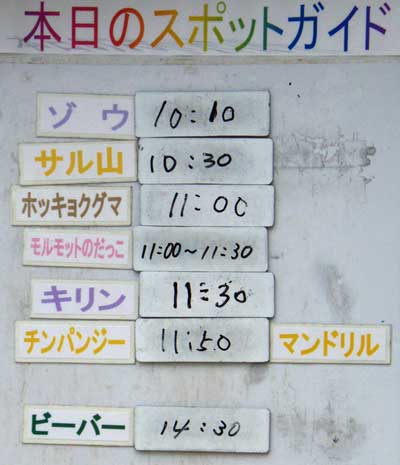 本日のスポットガイド
ゾウ 10:10
サル山 10:30
ホッキョクグマ 11:00
モルモットのだっこ 11:00～11:30
キリン 11:30
チンパンジー 11:50 マンドリル
ビーバー 14:30